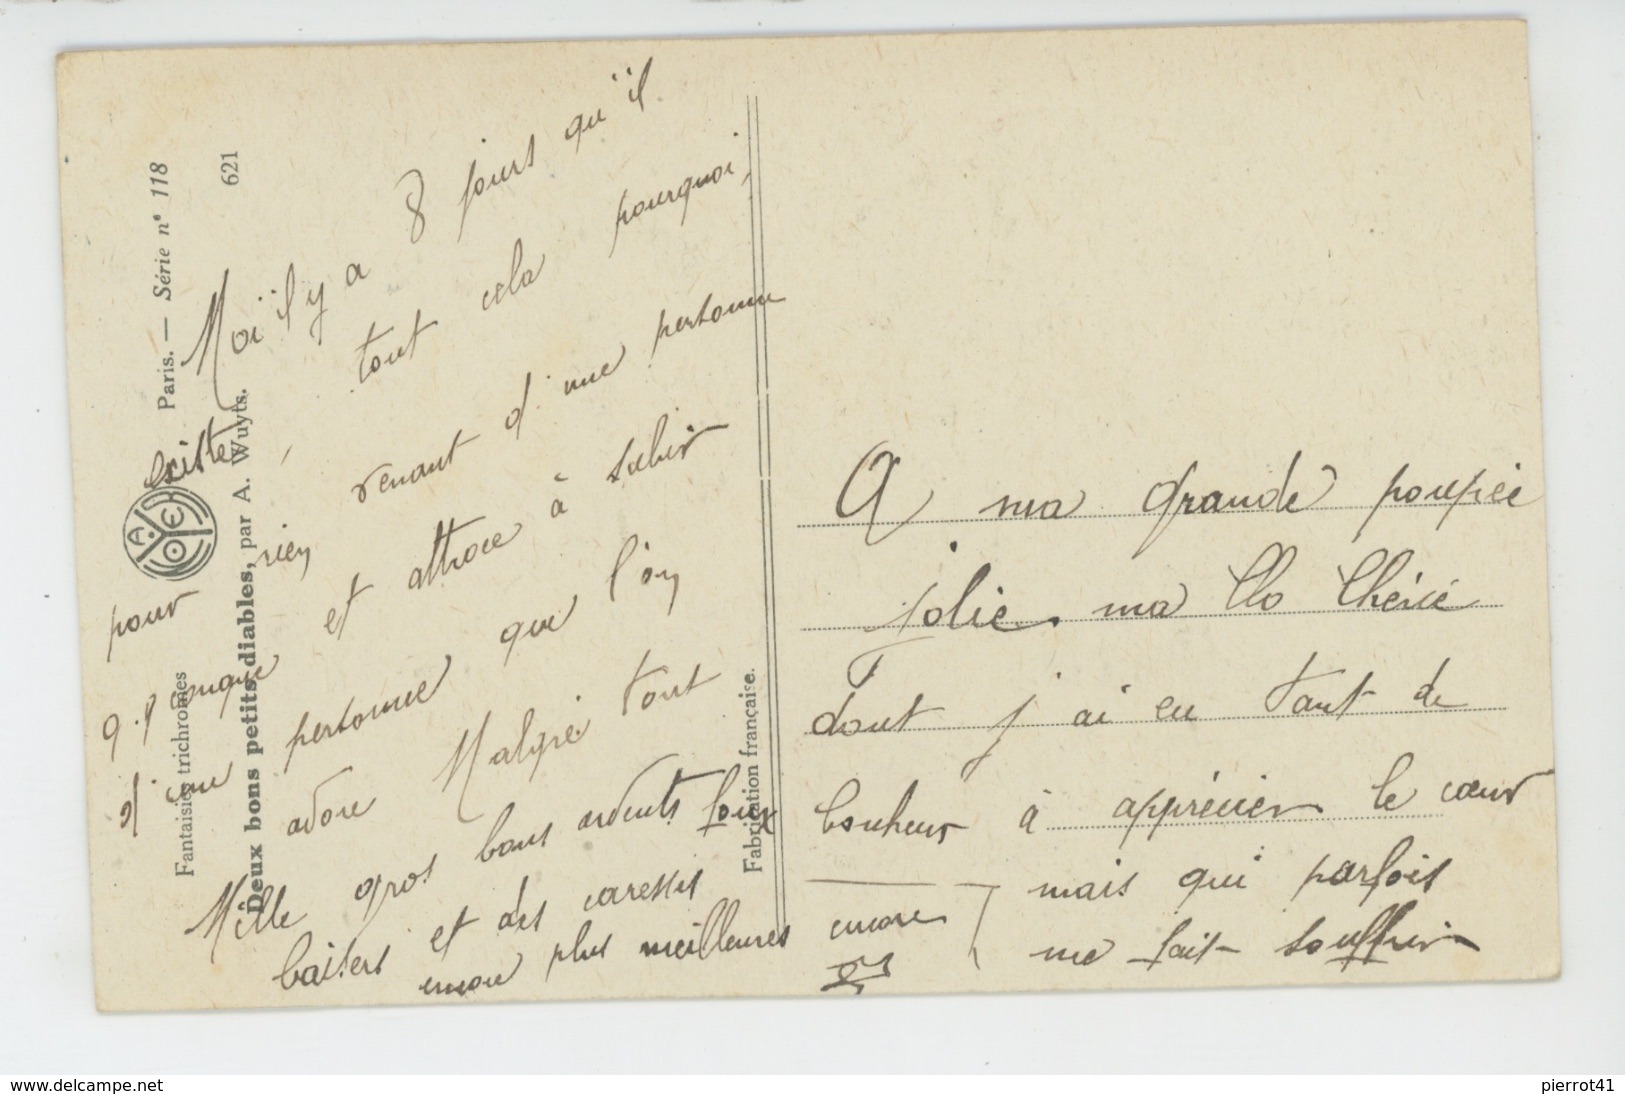 Paris. — Série n° 118
621
Fantaisies trichromes
Deux bons petits diables, par A. Wuyts.
Fabrication française.
Moi il y a 8 jours qu'il
existe, tout cela pourquoi,
pour rien venant d'une personne
q.q conque et attroce à subir
d'une personne que l'on
adore Malgré tout
Mille gros bons ardents foux
baisers et des caresses
encore plus meilleures encore
A ma grande poupée
jolie. ma Clo Chérie
dont j'ai eu tant de
bonheur à apprécier le cœur
mais qui parfois
me fait souffrir
www.delcampe.net
pierrot41